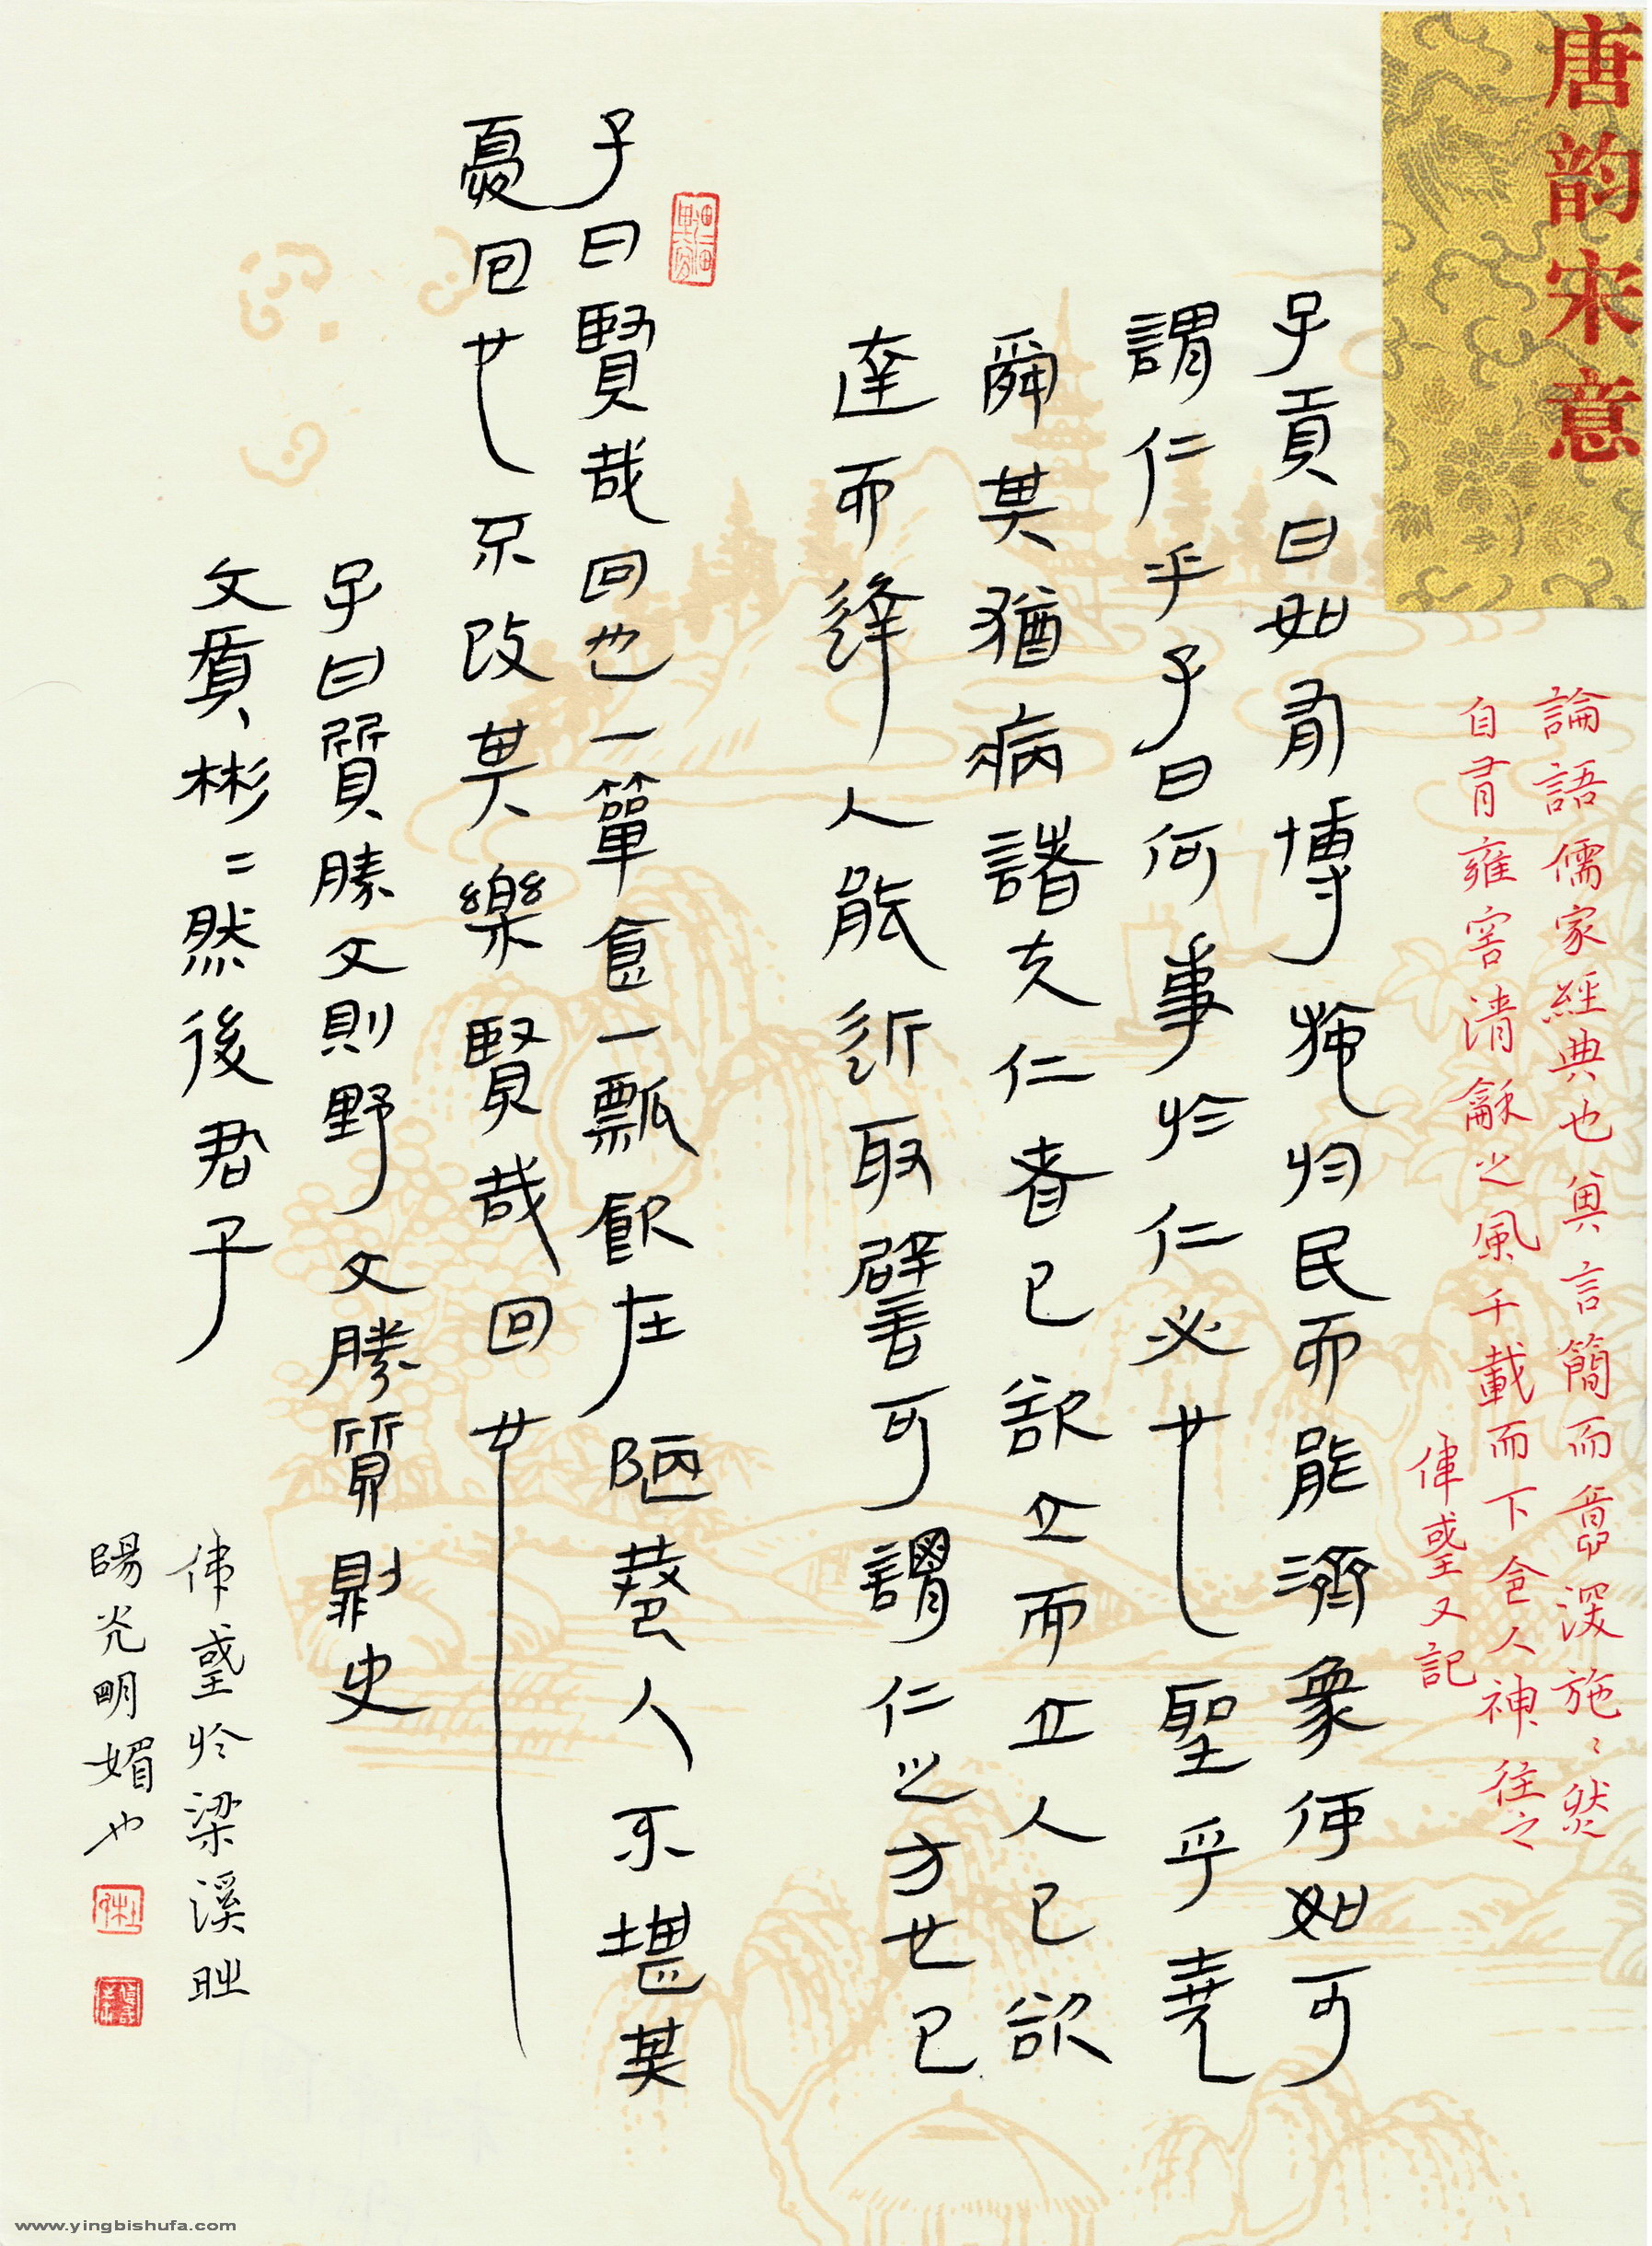 唐韵宋意
論語儒家經典也其言簡而意深施〻然
自有雍容清龢之風千載而下令人神往之
偉璗又記
子貢曰如有博施於民而能濟衆何如可
謂仁乎子曰何事於仁必也聖乎堯
舜其猶病諸夫仁者己欲立而立人己欲
達而達人能近取譬可謂仁之方也已
子曰賢哉回也一簞食一瓢飲在陋巷人不堪其
憂回也不改其樂賢哉回也
子曰質勝文則野文勝質則史
文質彬〻然後君子
於梁溪
陽光明媚也
www.yingbishufa.com